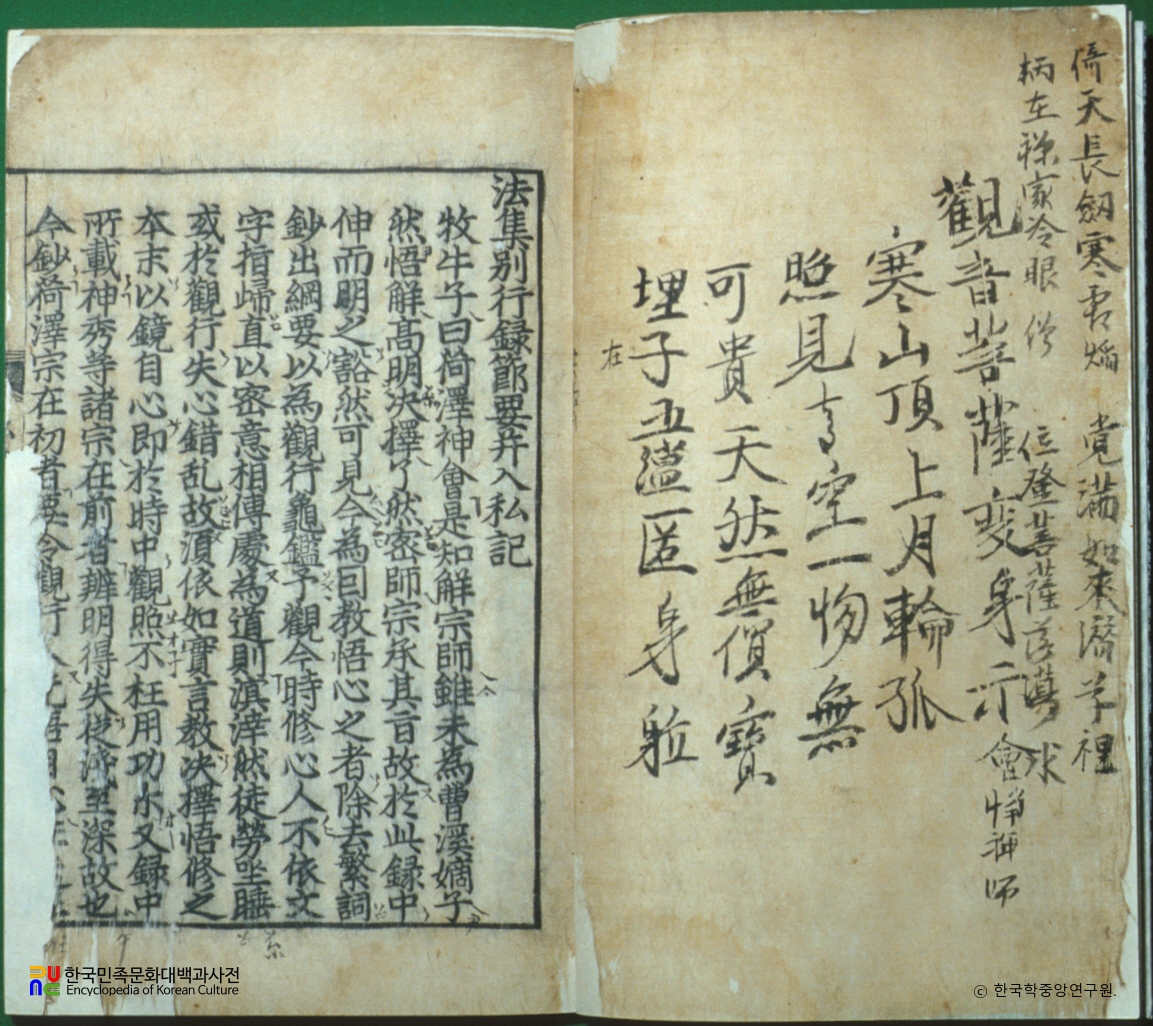 倚天長劒寒 覺滿如來
柄在禪家冷眼僧 位登菩薩 求
觀音菩薩變身示
會 禪師
寒山頂上月輪孤
照見 空一物無
可貴天然無價寶
埋子五蘊匿身軀
在
法集別行録節要并入私記
牧牛子曰荷澤神會是知解宗師雖未為曹溪嫡子
然悟解髙明決擇了然密師宗承其旨故於此録中
伸而明之豁然可見今為因教悟心之者除去繁詞
鈔出綱要以為觀行龜鑑予觀今時修心人不依文
字指歸直以密意相傳處為道則溟涬然徒勞坐睡
或於觀行失心錯乱故湏依如實言教决擇悟修之
本末以鏡自心即於時中觀照不枉用功尒又録中
所載神秀等諸宗在前者辨明得失從淺至深故也
今鈔荷澤宗在初者要令觀行人先悟自心
한국민족문화대백과사전
Encyclopedia of Korean Culture
ⓒ 한국학중앙연구원.